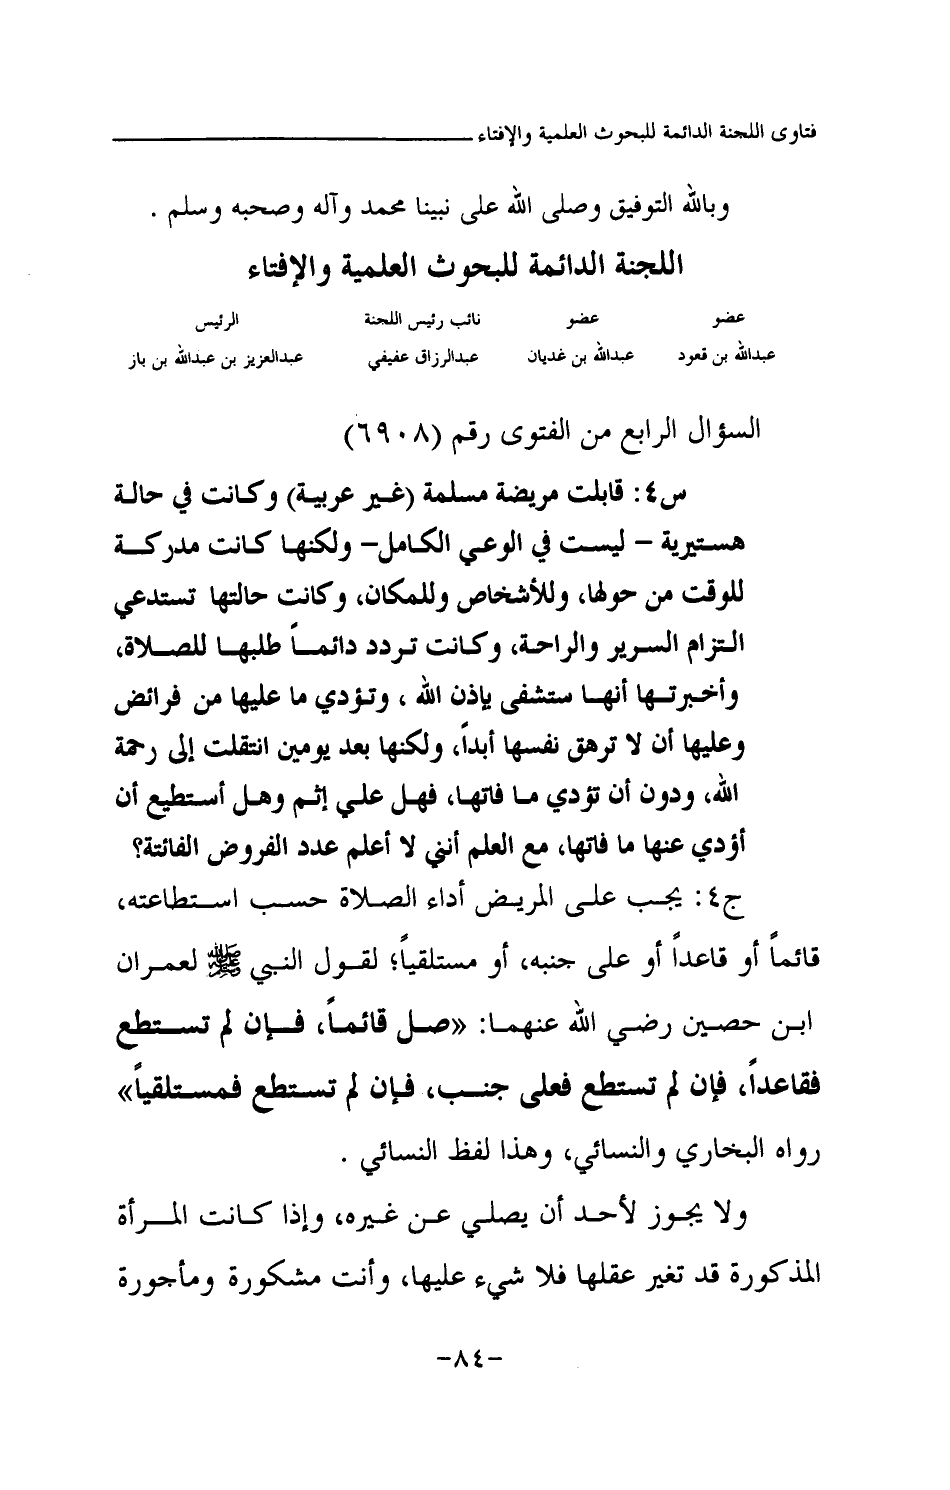 فتاوى اللجنة الدائمة للبحوث العلمية والإفتاء
وبالله التوفيق وصلى الله على نبينا محمد وآله وصحبه وسلم .
اللجنة الدائمة للبحوث العلمية والإفتاء
عضو عضو نائب رئيس اللجنة الرئيس
عبدالله بن قعود عبدالله بن غديان عبدالرزاق عفيفي عبدالعزيز بن عبدالله بن باز
السؤال الرابع من الفتوى رقم (٦٩٠٨)
س٤: قابلت مريضة مسلمة (غير عربية) وكانت في حالة
هستيرية – ليست في الوعي الكامل– ولكنها كانت مدركة
للوقت من حولها، وللأشخاص وللمكان، وكانت حالتها تستدعي
التزام السرير والراحة، وكانت تردد دائماً طلبها للصلاة،
وأخبرتها أنها ستشفى بإذن الله ، وتؤدي ما عليها من فرائض
وعليها أن لا ترهق نفسها أبداً، ولكنها بعد يومين انتقلت إلى رحمة
الله، ودون أن تؤدي ما فاتها، فهل علي إثم وهل أستطيع أن
أؤدي عنها ما فاتها، مع العلم أنني لا أعلم عدد الفروض الفائتة؟
ج٤: يجب على المريض أداء الصلاة حسب استطاعته،
قائماً أو قاعداً أو على جنبه، أو مستلقياً؛ لقول النبي ﷺ لعمران
ابن حصين رضي الله عنهما: «صل قائماً، فإن لم تستطع
فقاعداً، فإن لم تستطع فعلى جنب، فإن لم تستطع فمستلقياً»
رواه البخاري والنسائي، وهذا لفظ النسائي .
ولا يجوز لأحد أن يصلي عن غيره، وإذا كانت المرأة
المذكورة قد تغير عقلها فلا شيء عليها، وأنت مشكورة ومأجورة
–٨٤–